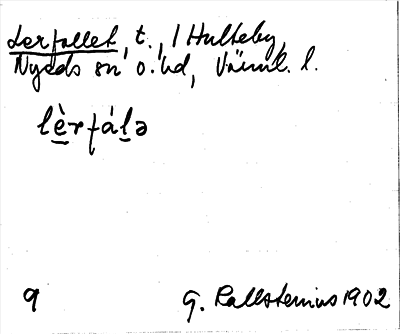 Lerfallet, t., i Hulteby,
Nyeds sn o. hd, Värml. l.
lè̱rfáḻə
9 G. Kallstenius 1902